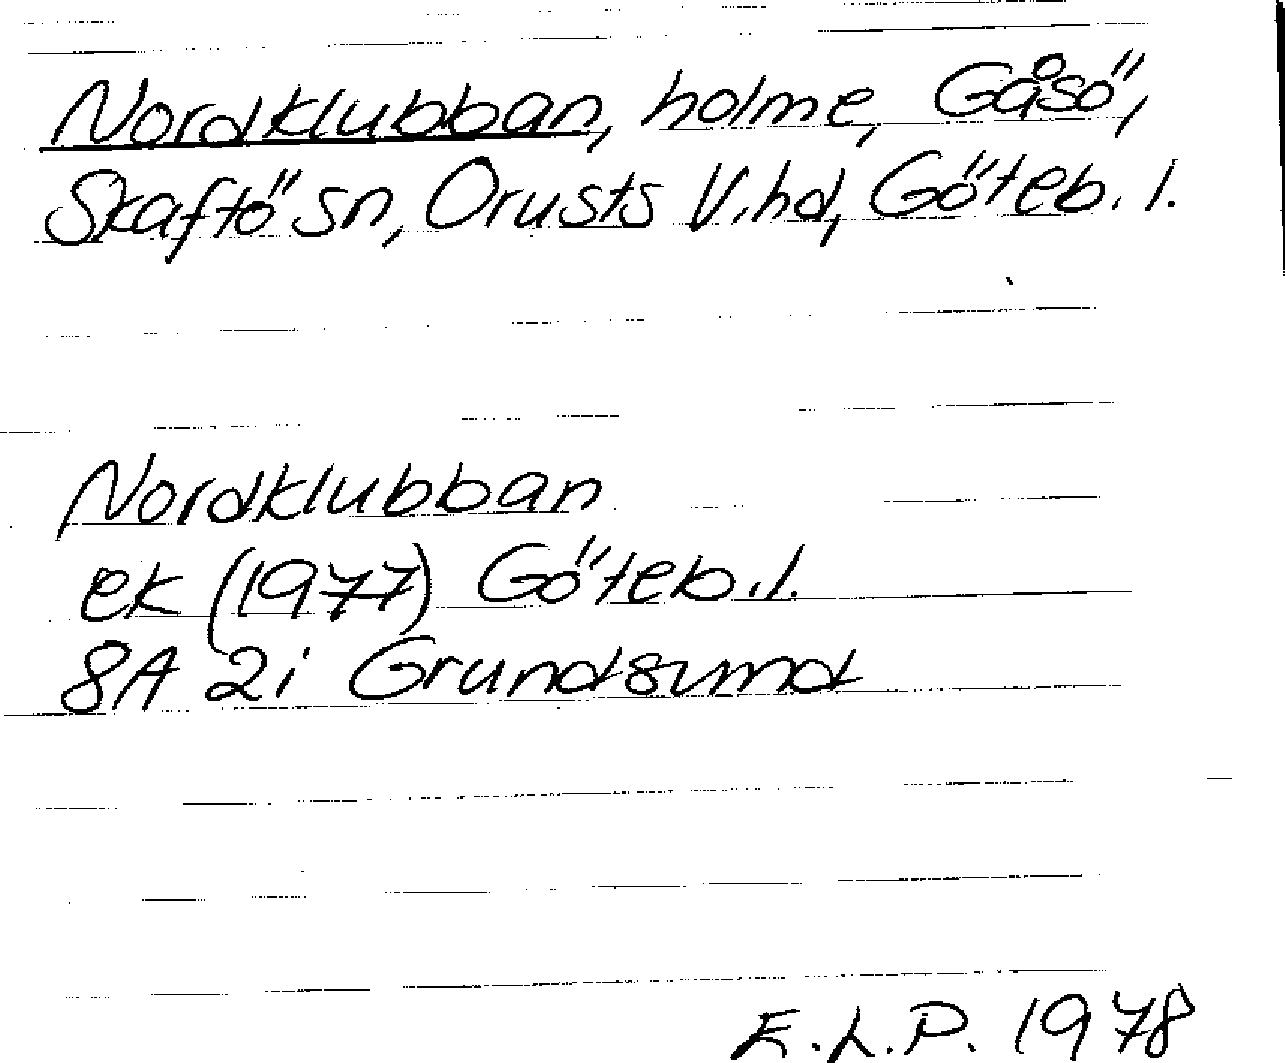 Nordklubban, holme, Gåsö,
Skaftö sn, Orusts V. hd, Göteb. l.
Nordklubban
ek (1977) Göteb. l.
8A 2i Grundsund
E.L.P. 1978